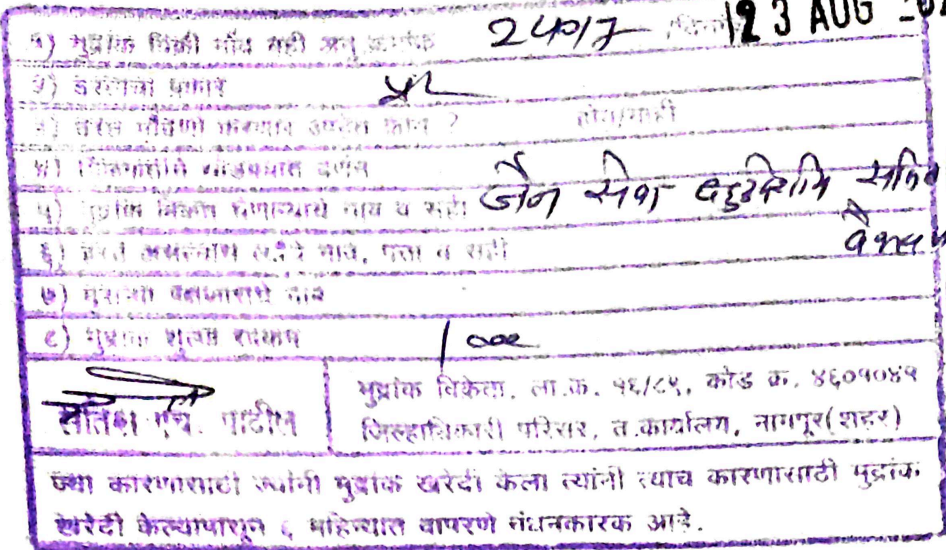 १) मुद्रांक विक्री नोंद वही अनु क्रमांक 24017 23 AUG
२) दस्ताचा प्रकार
३) दस्त नोंदणी करणार आहेत काय ? होय/नाही
४) मिळकतीचे थोडक्यात वर्णन
५) मुद्रांक विकत घेणाऱ्याचे नाव व सही जैन सेवा
६) हस्ते असल्यास त्यांचे नाव, पत्ता व सही
७) दुसऱ्या पक्षकाराचे नाव
८) मुद्रांक शुल्क रक्कम
एच. पाटील
मुद्रांक विक्रेता. ला.क्र. १६/८९, कोड क्र. ४६०१०४१
जिल्हाधिकारी परिसर, त.कार्यालय, नागपूर(शहर)
ज्या कारणासाठी ज्यांनी मुद्रांक खरेदी केला त्यांनी त्याच कारणासाठी मुद्रांक
खरेदी केल्यापासून ६ महिन्यात वापरणे बंधनकारक आहे.